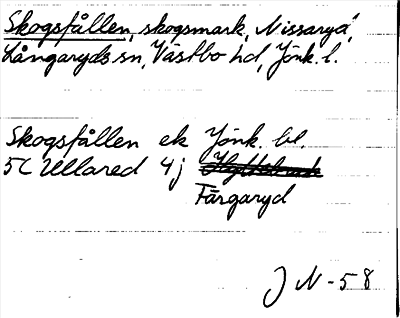 Skogsfållen, skogsmark, Nissaryd,
Långaryds sn, Västbo hd, Jönk. l.
Skogsfållen ek Jönk. bl.
5C Ullared 4j
Färgaryd
JN-58